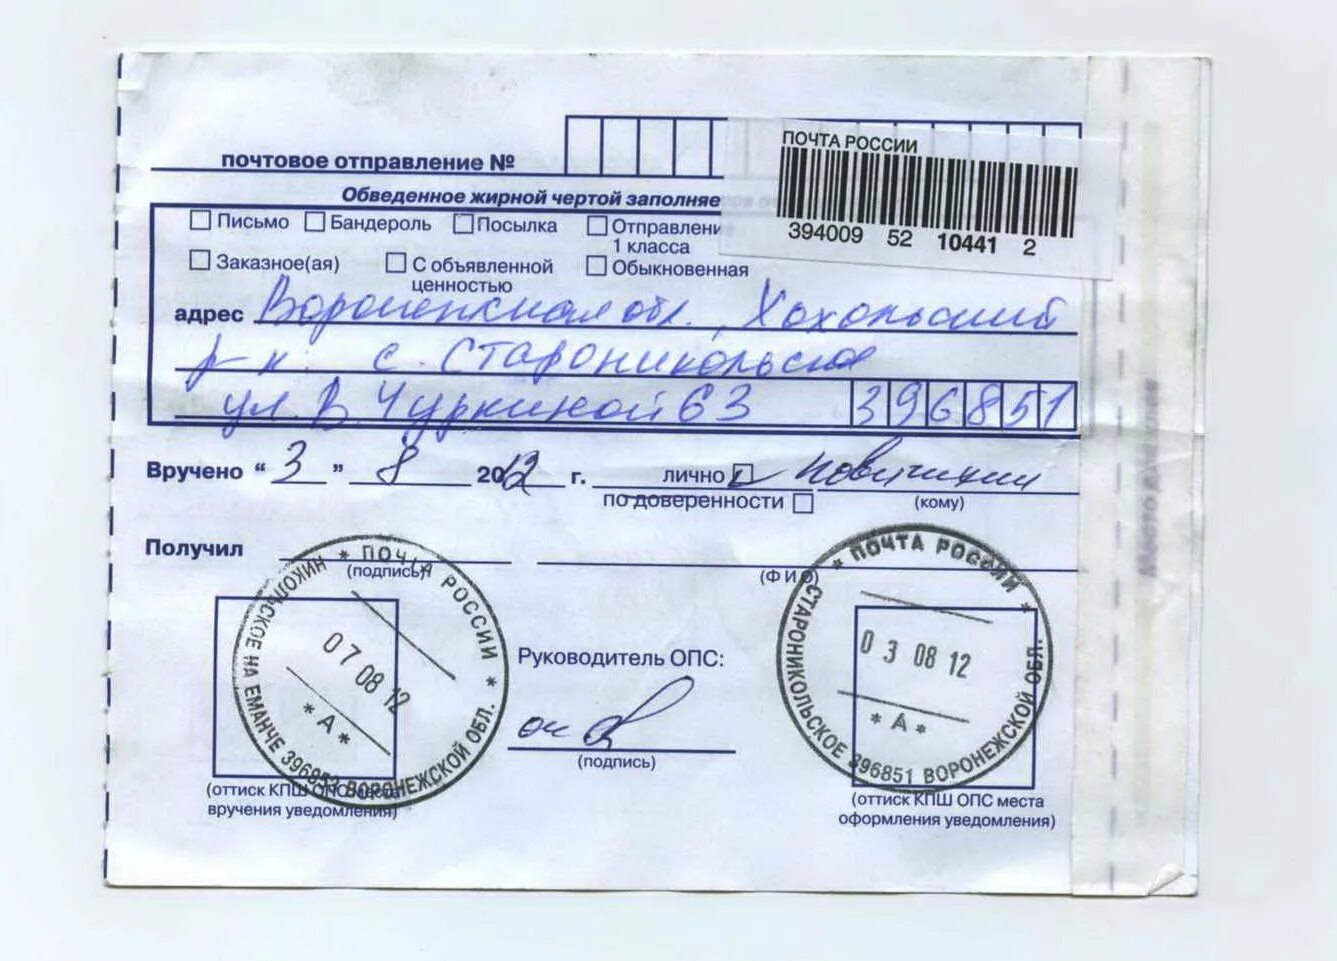 ПОЧТА РОССИИ
394009 52 10441 2
почтовое отправление №
Обведенное жирной чертой заполняе
Письмо Бандероль Посылка Отправлени
1 класса
Заказное(ая) С объявленной ценностью Обыкновенная
адрес Воронежская обл., Хохольский
р-н. с. Староникольское
ул. В. Чуркиной 63 396851
Вручено “ 3 ” 8 2012 г. лично
по доверенности (кому)
Получил
(подпись) (Ф И О)
* ПОЧТА РОССИИ * НИКОЛЬСКОЕ НА ЕМАНЧЕ 396953 ВОРОНЕЖСКОЙ ОБЛ.
07 08 12
* А *
Руководитель ОПС:
(подпись)
* ПОЧТА РОССИИ * СТАРОНИКОЛЬСКОЕ 396851 ВОРОНЕЖСКОЙ ОБЛ.
03 08 12
* А *
(оттиск КПШ ОПС места
вручения уведомления)
(оттиск КПШ ОПС места
оформления уведомления)